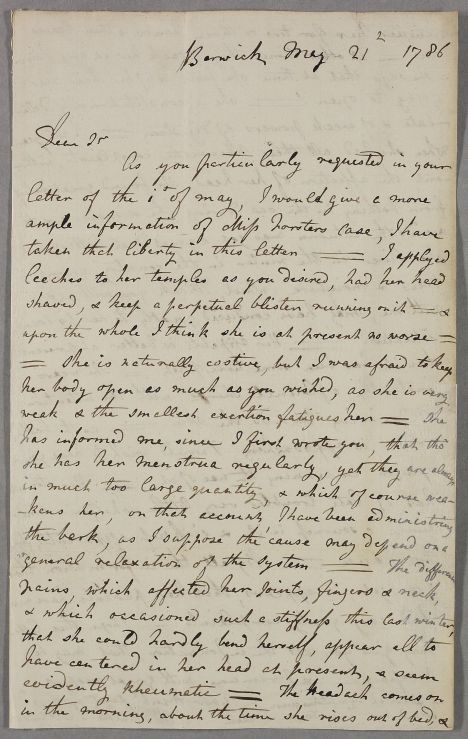 Berwick May 21st 1786
Dear Sr
As you particularly requested in your
letter of the 1st of may, I would give a more
ample information of Miss Forsters case, I have
taken that liberty in this letter — I applyed
leeches to her temples as you desired, had her head
shaved, & keep a perpetual blister running on it — &
upon the whole I think she is at present no worse =
= She is naturally costive, but I was afraid to keep
her body open as much as you wished, as she is very
weak & the smallest exertion fatigues her = She
has informed me, since I first wrote you, that tho'
she has her menstrua regularly, yet they are always
in much too large quantity, & which of course wea-
-kens her, on that account, I have been administring
the bark, as I suppose the cause may depend on a
general relaxation of the system — The different
pains, which affected her Joints, fingers & neck,
& which occasioned such a stiffness this last winter,
that she could hardly bend herself, appear all to
have centered in her head at present, & seem
evidently Rheumatic = The Headach comes on
in the morning, about the time she rises out of bed, &